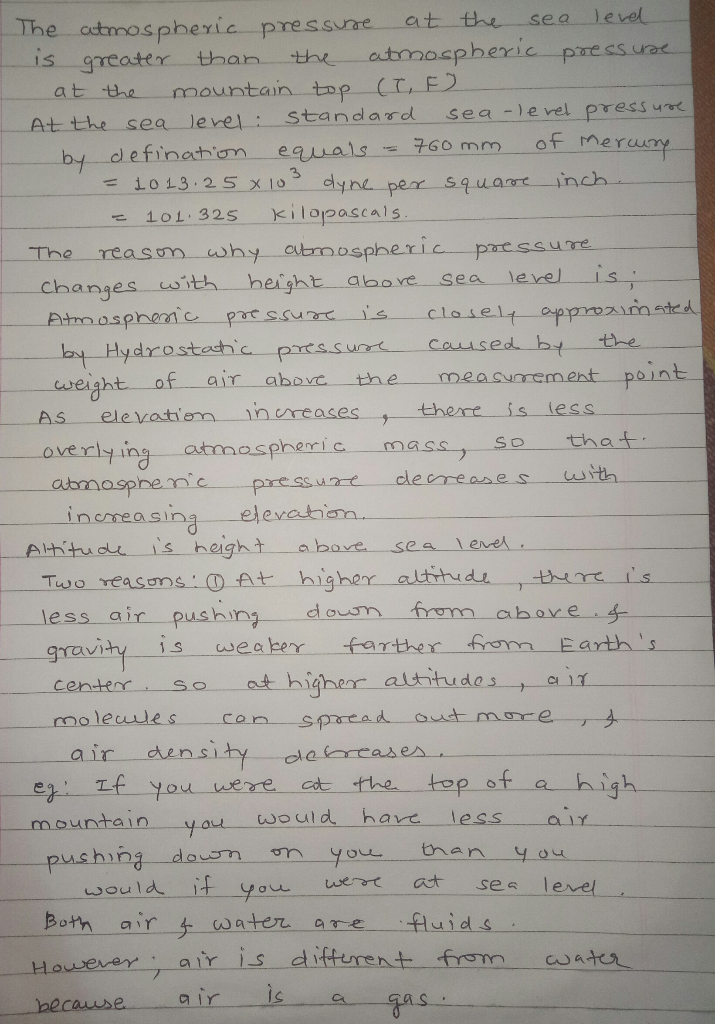 The atmospheric pressure at the sea level
is greater than the atmospheric pressure
at the mountain top (T, F)
At the sea level: standard sea-level pressure
by defination equals = 760 mm of mercury
= 1013.25 x 10³ dyne per square inch.
= 101.325 kilopascals.
The reason why atmospheric pressure
changes with height above sea level is;
Atmospheric pressure is closely approximated
by Hydrostatic pressure caused by the
weight of air above the measurement point
As elevation increases, there is less
overlying atmospheric mass, so that.
atmospheric pressure decreases with
increasing elevation.
Altitude is height above sea level.
Two reasons: ① At higher altitude, there is
less air pushing down from above. &
gravity is weaker farther from Earth's
center. so at higher altitudes, air
molecules can spread out more, &
air density decreases.
eg: If you were at the top of a high
mountain you would have less air
pushing down on you than you
would if you were at sea level.
Both air & water are fluids.
However; air is different from water
because air is a gas.